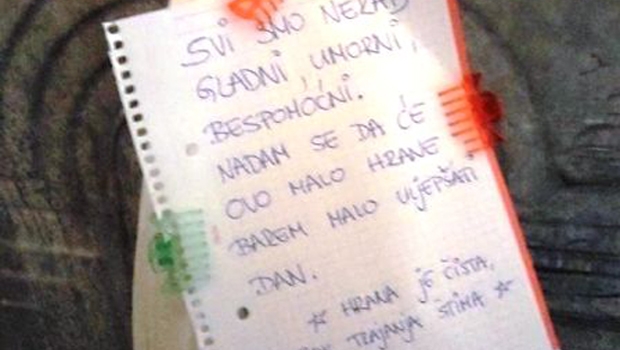 SVI SMO NEKAD
GLADNI, UMORNI,
BESPOMOĆNI.
NADAM SE DA ĆE
OVO MALO HRANE
BAREM MALO ULJEPŠATI
DAN.
☆ HRANA JE ČISTA,
ROK TRAJANJA ŠTIMA ☆